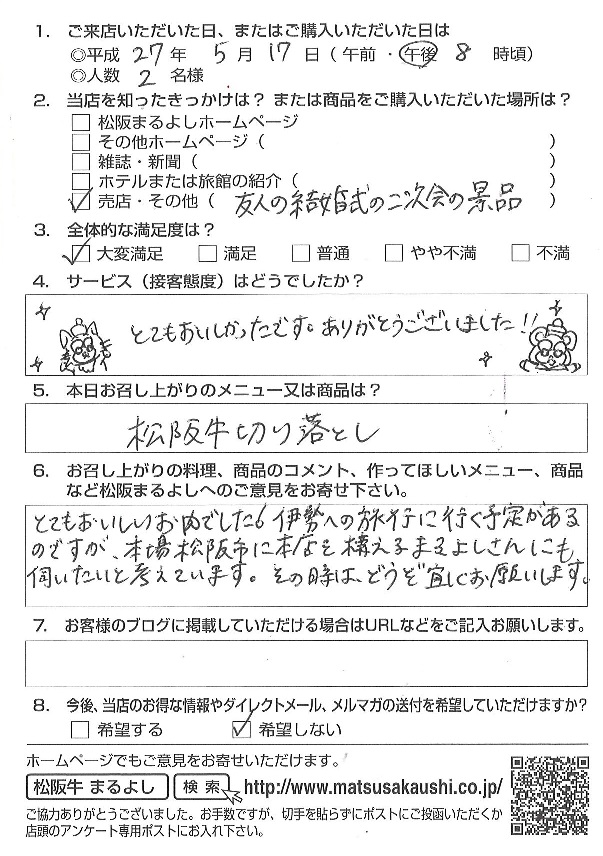 1. ご来店いただいた日、またはご購入いただいた日は
◎平成 27 年 5 月 17 日（午前・午後 8 時頃）
◎人数 2 名様
2. 当店を知ったきっかけは？ または商品をご購入いただいた場所は？
□ 松阪まるよしホームページ
□ その他ホームページ（ ）
□ 雑誌・新聞（ ）
□ ホテルまたは旅館の紹介（ ）
☑ 売店・その他（ 友人の結婚式の二次会の景品 ）
3. 全体的な満足度は？
☑ 大変満足 □ 満足 □ 普通 □ やや不満 □ 不満
4. サービス（接客態度）はどうでしたか？
とてもおいしかったです。ありがとうございました!!
5. 本日お召し上がりのメニュー又は商品は？
松阪牛切り落とし
6. お召し上がりの料理、商品のコメント、作ってほしいメニュー、商品
など松阪まるよしへのご意見をお寄せ下さい。
とてもおいしいお肉でした。伊勢への旅行に行く予定がある
のですが、本場松阪市に本店を構えるまるよしさんにも
伺いたいと考えています。その時は、どうぞ宜しくお願いします。
7. お客様のブログに掲載していただける場合はURLなどをご記入お願いします。
8. 今後、当店のお得な情報やダイレクトメール、メルマガの送付を希望していただけますか？
□ 希望する ☑ 希望しない
ホームページでもご意見をお寄せいただけます。
松阪牛 まるよし 検索 http://www.matsusakaushi.co.jp/
ご協力ありがとうございました。お手数ですが、切手を貼らずにポストにご投函いただくか
店頭のアンケート専用ポストにお入れ下さい。